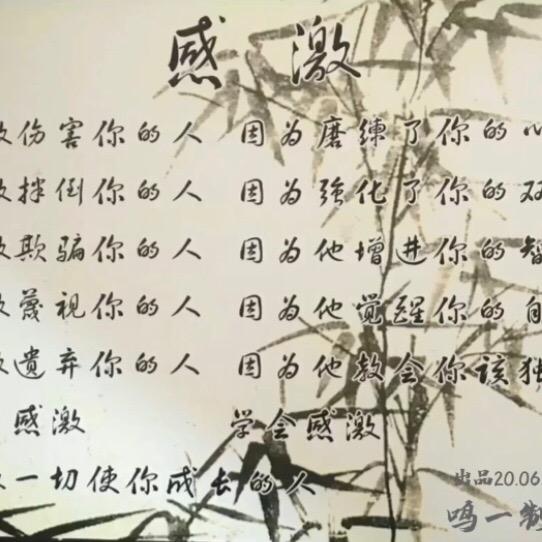 感激
激伤害你的人 因为磨練了你的心
激拌倒你的人 因为強化了你的双
激欺骗你的人 因为他增进你的智
激蔑视你的人 因为他觉醒你的自
激遗弃你的人 因为他教会你该独
感激 学会感激
一切使你成长的人
出品20.06
鸣一制